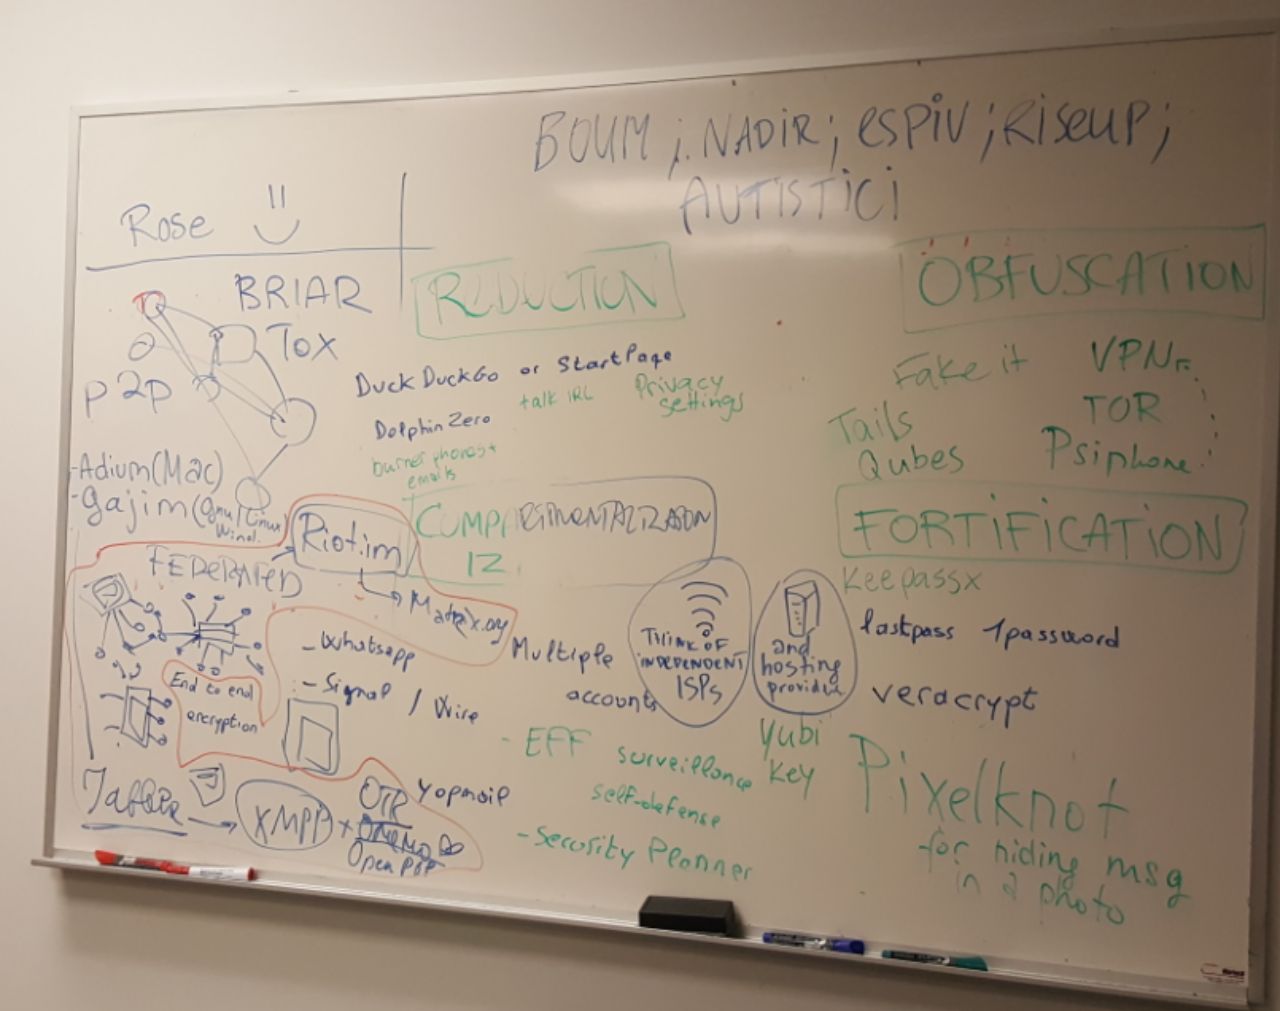 BOUM ; NADIR ; ESPIV ; RISEUP ;
AUTISTICI
Rose
BRIAR
TOX
p2p
-Adium (Mac)
-Gajim (Gnu/Linux
Wind.
FEDERATED
Riot.im
Matrix.org
REDUCTION
DuckDuckGo or StartPage
talk IRL
Privacy
settings
Dolphin Zero
burner phones +
emails
OBFUSCATION
Fake it
VPN
TOR
Psiphone
Tails
Qubes
COMPARTMENTALIZATION
IZ
Multiple
accounts
THINK OF
INDEPENDENT
ISPs
and
hosting
provider
FORTIFICATION
Keepassx
lastpass 1password
veracrypt
Yubi
Key
Pixelknot
for hiding msg
in a photo
- Whatsapp
- Signal / Wire
End to end
encryption
Jabber
XMPP +
OTR
OMEMO
Open PGP
yopmail
- EFF surveillance
self-defense
- Security Planner